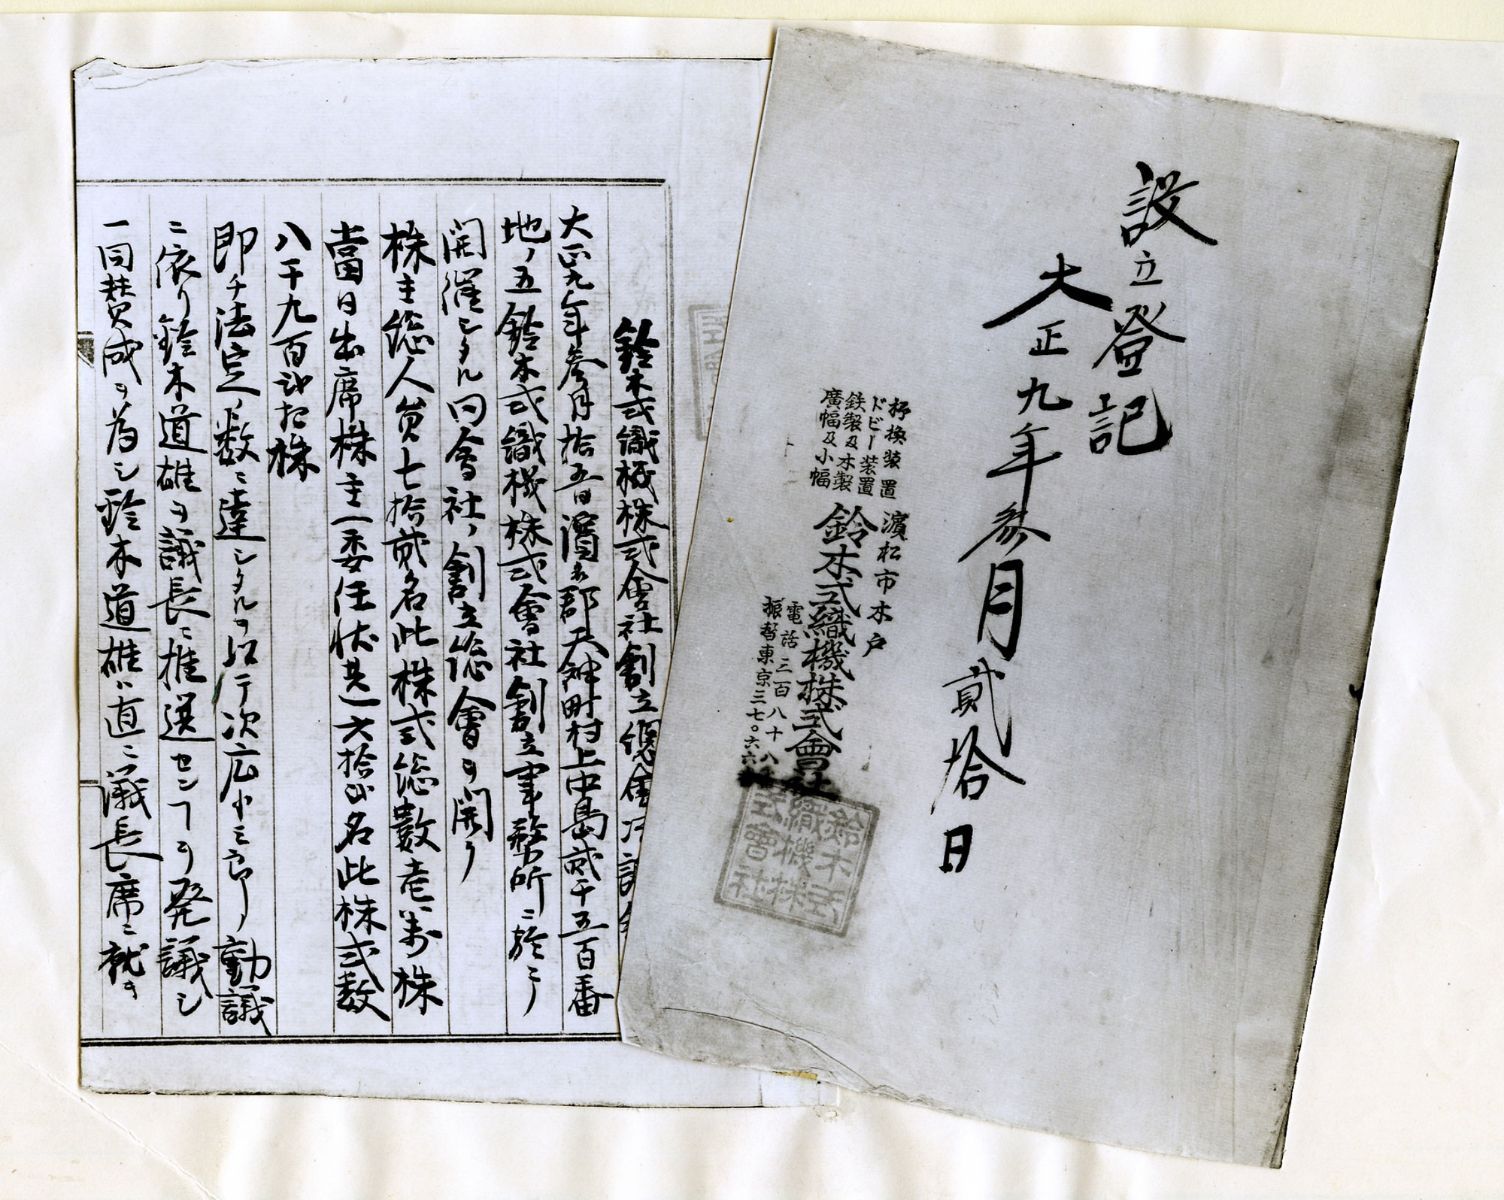 設立登記
大正九年参月貳拾日
杼換装置
ドビー装置
鉄製及木製
廣幅及小幅
濱松市木戸
鈴木式織機株式會社
電話三百八十八
振替東京三七〇六六
鈴木式
織機株
式會社
鈴木式織機株式會社創立總會决議
大正九年参月拾五日濱名郡天神町村上中島貳千五百番
地ノ五鈴木式織機株式會社創立事務所ニ於テ
開催シタル同會社ノ創立総會ヲ開ク
株主総人員七拾貳名此株式総數壱万株
當日出席株主委任状共六拾名此株式数
八千九百株
即チ法定ノ数ニ達シタルヲ以テ次広ノ動議
ニ依リ鈴木道雄ヲ議長ニ推選センコトヲ発議シ
一同賛成ヲ為シ鈴木道雄ハ直ニ議長席ニ就キ